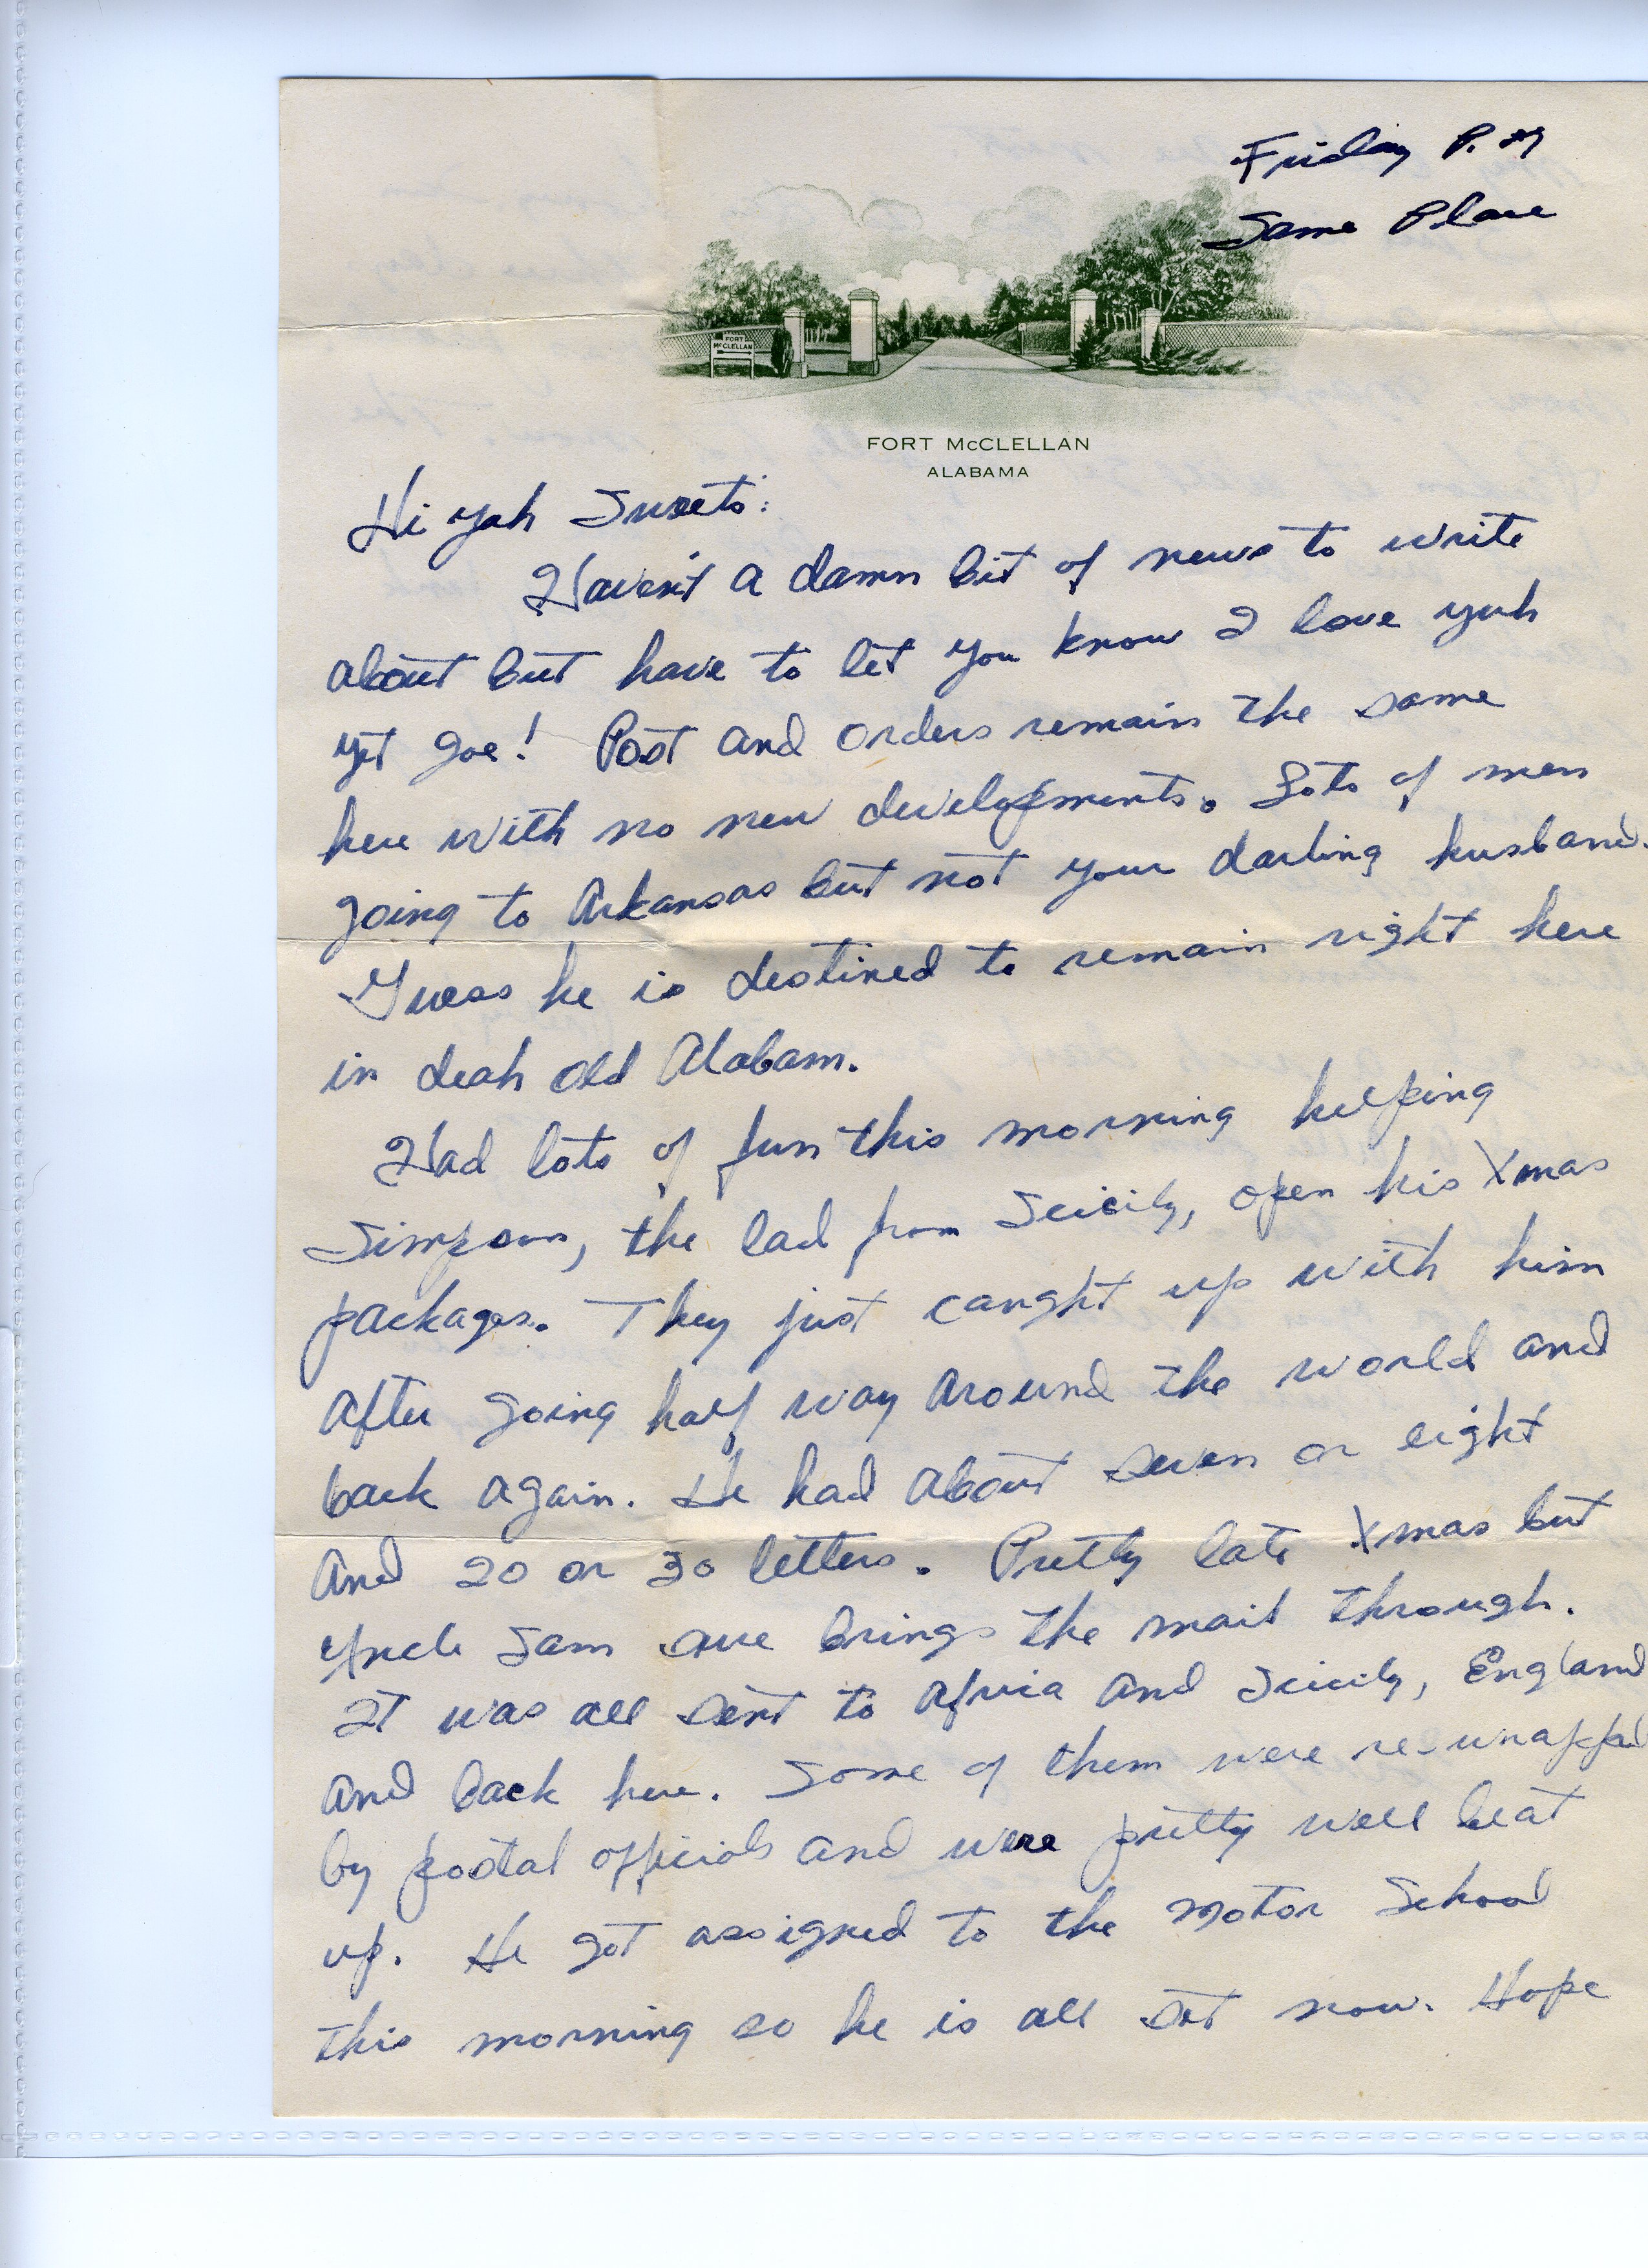 Friday P.M
Same Place
FORT
McCLELLAN
FORT McCLELLAN
ALABAMA
Hi yah Sweets:
Haven't a damn bit of news to write
about but have to let you know I love yuh
yet Joe! Post and orders remain the same
here with no new developments. Lots of men
going to Arkansas but not your darling husband.
Guess he is destined to remain right here
in deah old Alabam.
Had lots of fun this morning helping
Simpson, the lad from Scicily, open his Xmas
packages. They just caught up with him
after going half way around the world and
back again. He had about seven or eight
and 20 or 30 letters. Pretty late Xmas but
Uncle Sam sure brings the mail through.
It was all sent to Africa and Scicily, England
and back here. Some of them were re-wrapped
by postal officials and were pretty well beat
up. He got assigned to the Motor School
this morning so he is all set now. Hope